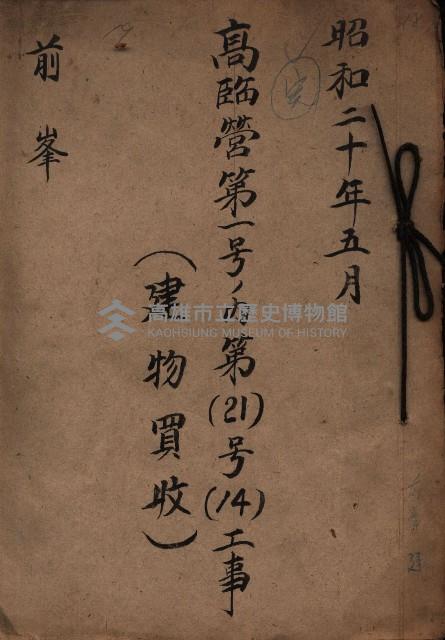 昭和二十年五月
完
高臨營第一号ノ内第(21)号(14)工事
(建物買收)
前峯
高雄市立歷史博物館
KAOHSIUNG MUSEUM OF HISTORY